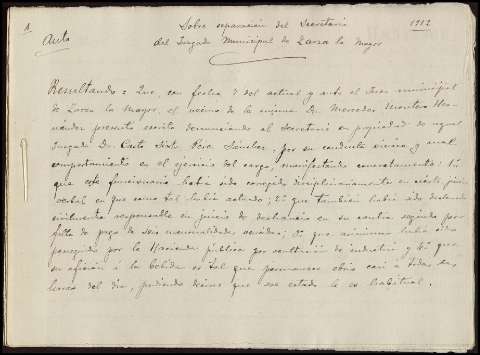 Sobre separación del Secretario 1912
Auto del Juzgado Municipal de Zarza la Mayor
Resultando: Que, con fecha 7 del actual y ante el Juez municipal
de Zarza la Mayor, el vecino de la misma Dn. Mercedes Montero Her-
nández presentó escrito denunciando al Secretario en propiedad de aquel
Juzgado Dn. Casto Sánchez, por su conducta viciosa y mal
comportamiento en el ejercicio del cargo, manifestando concretamente: 1º
que este funcionario había sido corregido disciplinariamente en cierto juicio
verbal en que como tal había actuado; 2º que también había sido declarado
civilmente responsable en juicio de desahucio en su contra seguido por
falta de pago de seis mensualidades vencidas; 3º que asimismo había sido
perseguido por la Hacienda pública por y 4º que
su afición á la bebida es tal que permanece ebrio casi á todas las
horas del día, pudiendo decirse que ese estado le es habitual.